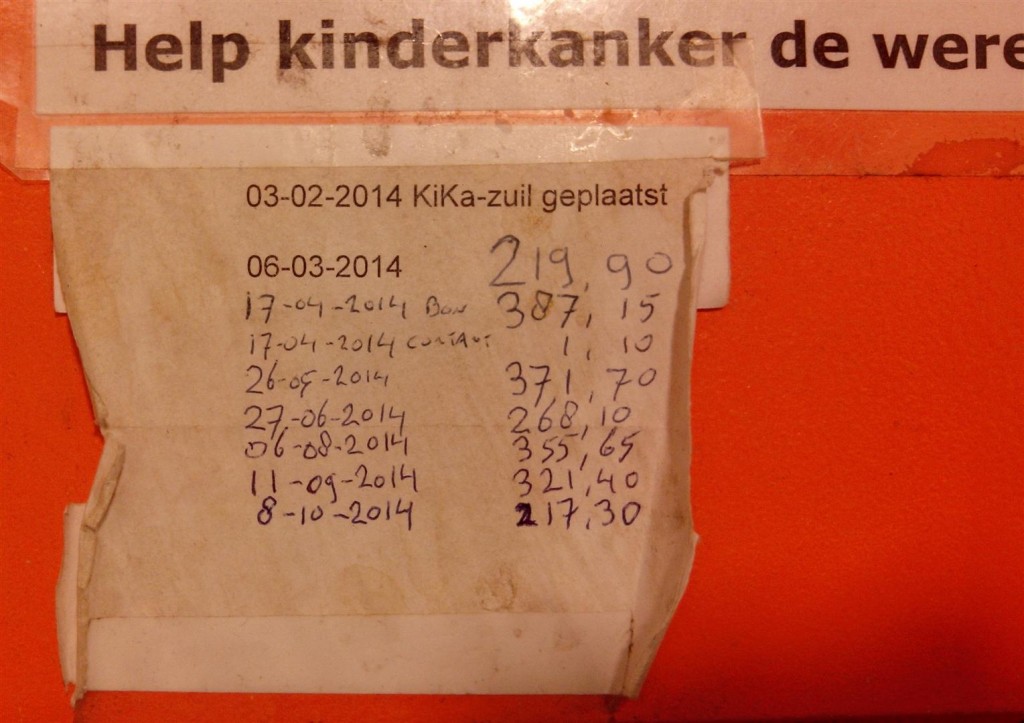 Help kinderkanker de were
03-02-2014 KiKa-zuil geplaatst
06-03-2014 219,90
17-04-2014 Bon 387,15
17-04-2014 contant 1,10
26-05-2014 371,70
27-06-2014 268,10
06-08-2014 355,65
11-09-2014 321,40
8-10-2014 217,30